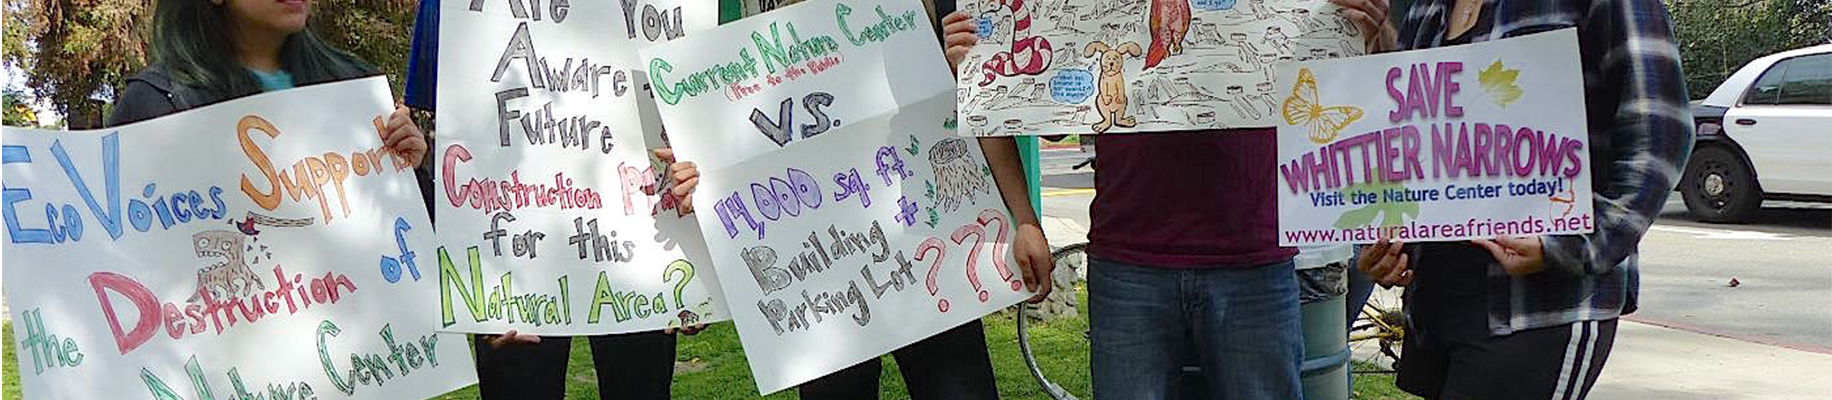 EcoVoices Support
the Destruction of
Nature Center
Are You
Aware
Future
Construction
for this
Natural Area?
Current Nature Center
(Free to the Public)
VS.
14,000 sq. ft.
Building +
Parking Lot ???
SAVE
WHITTIER NARROWS
Visit the Nature Center today!
www.naturalareafriends.net